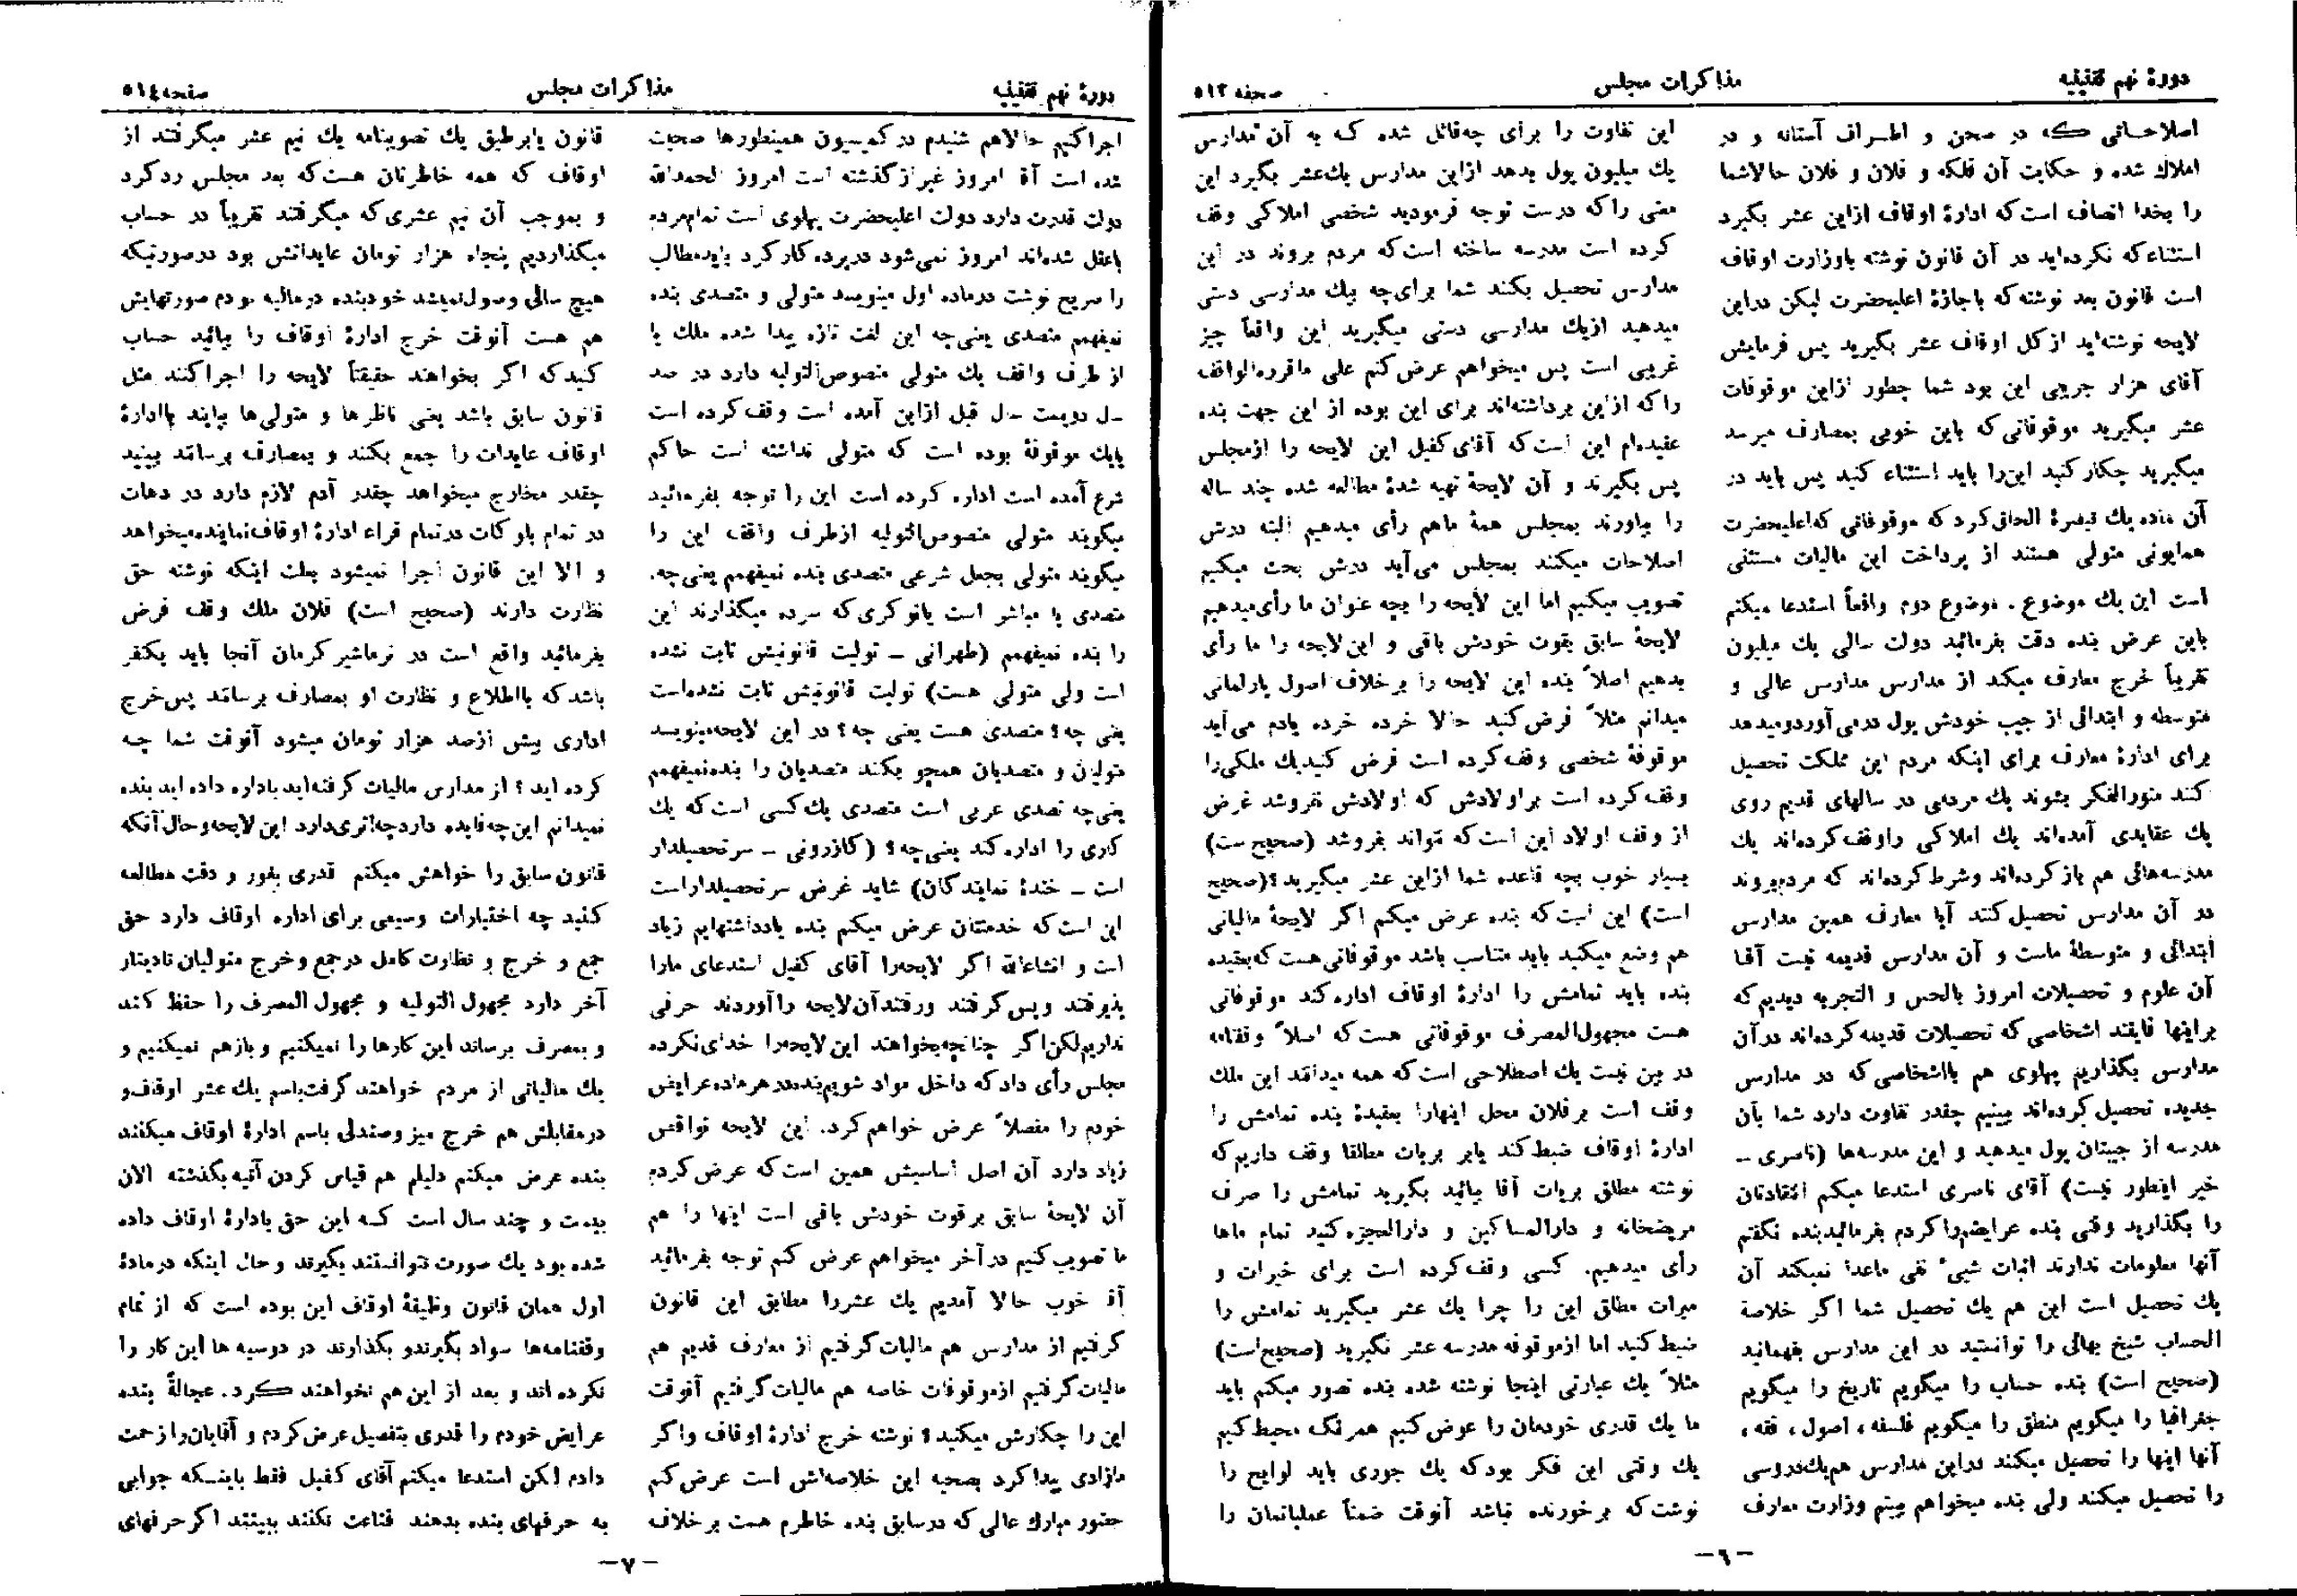 دورهٔ نهم تقنینیه
مذاکرات مجلس
صحفه ۵۱۳
اصلاحاتی که در صحن و اطراف آستانه و در
املاك شده و حکایت آن فلکه و فلان و فلان حالاشما
را بخدا انصاف است که ادارهٔ اوقاف ازاین عشر بگیرد
استثناء که نکرده‌اید در آن قانون نوشته باوزارت اوقاف
است قانون بعد نوشته که باجازهٔ اعلیحضرت لیکن دراین
لایحه نوشته‌اید از کل اوقاف عشر بگیرید پس فرمایش
آقای هزار جریبی این بود شما چطور ازاین موقوفات
عشر میگیرید موقوفاتی که باین خوبی بمصارف میرسد
میگیرید چکار کنید این‌را باید استثناء کنید پس باید در
آن ماده یك تبصرهٔ الحاق کرد که موقوفاتی که اعلیحضرت
همایونی متولی هستند از پرداخت این مالیات مستثنی
است این یك موضوع . موضوع دوم واقعاً استدعا میکنم
باین عرض بنده دقت بفرمائید دولت سالی یك میلیون
تقریباً خرج معارف میکند از مدارس مدارس عالی و
متوسطه و ابتدائی از جیب خودش پول درمی‌آوردومیدهد
برای ادارهٔ معارف برای اینکه مردم این مملکت تحصیل
کنند منورالفکر بشوند یك مردمی در سالهای قدیم روی
یك عقایدی آمده‌اند یك املاکی راوقف کرده‌اند یك
مدرسه‌هائی هم باز کرده‌اند وشرط کرده‌اند که مردم‌بروند
در آن مدارس تحصیل کنند آیا معارف همین مدارس
ابتدائی و متوسطهٔ ماست و آن مدارس قدیمه نیست آقا
آن علوم و تحصیلات امروز بالحس و التجربه دیدیم که
براینها فایقند اشخاصی که تحصیلات قدیمه کرده‌اند درآن
مدارس بگذاریم پهلوی هم بااشخاصی که در مدارس
جدیده تحصیل کرده‌اند ببینیم چقدر تفاوت دارد شما بآن
مدرسه از جیبتان پول میدهید و این مدرسه‌ها (ناصری ـ
خیر اینطور نیست) آقای ناصری استدعا میکم انتقادتان
را بگذارید وقتی بنده عرایضم‌را کردم بفرمائیدبنده نگفتم
آنها معلومات ندارند اثبات شیئی نفی ماعدا نمیکند آن
یك تحصیل است این هم یك تحصیل شما اگر خلاصة
الحساب شیخ بهائی را توانستید در این مدارس بفهمانید
(صحیح است) بنده حساب را میگویم تاریخ را میگویم
جغرافیا را میگویم منطق را میگویم فلسفه ، اصول ، فقه ،
آنها اینها را تحصیل میکند دراین مدارس هم‌یك‌دروسی
را تحصیل میکند ولی بنده میخواهم ببینم وزارت معارف
این تفاوت را برای چه‌قائل شده که به آن مدارس
یك میلیون پول بدهد ازاین مدارس یك‌عشر بگیرد این
معنی راکه درست توجه فرمودید شخصی املاکی وقف
کرده است مدرسه ساخته است‌که مردم بروند در این
مدارس تحصیل بکنند شما برای‌چه بیك مدارسی دستی
میدهید ازیك مدارسی دستی میگیرید این واقعاً چیز
غریبی است پس میخواهم عرض‌کنم علی ماقرره‌الواقف
راکه ازاین برداشته‌اند برای این بوده از این جهت بنده
عقیده‌ام این است‌که آقای‌کفیل این لایحه را ازمجلس
پس بگیرند و آن لایحهٔ تهیه شدهٔ مطالعه شده چند ساله
را بیاورند بمجلس همهٔ ماهم رأی میدهیم البته درش
اصلاحات میکنند بمجلس می‌آید درش بحث میکنیم
تصویب میکنیم اما این لایحه را بچه عنوان ما رأی‌میدهیم
لایحهٔ سابق بقوت خودش باقی و این‌لایحه را ما رأی
بدهیم اصلاً بنده این لایحه را برخلاف اصول پارلمانی
میدانم مثلاً فرض‌کنید حالا خرده خرده یادم می‌آید
موقوفهٔ شخصی وقف‌کرده است فرض کنیدیك ملکی‌را
وقف‌کرده است براولادش که اولادش نفروشد غرض
از وقف اولاد این است‌که نتواند بفروشد (صحیح‌ست)
بسیار خوب بچه قاعده شما ازاین عشر میگیرید؟(صحیح
است) این است‌که بنده عرض میکنم اگر لایحهٔ مالیاتی
هم وضع میکنید باید متناسب باشد موقوفاتی هست که‌بعقیده
بنده باید تمامش را ادارهٔ اوقاف اداره‌کند موقوفاتی
هست مجهول‌المصرف موقوفاتی هست‌که اصلاً وقفنامه
در بین نیست یك اصطلاحی است‌که همه میدانند این ملك
وقف است برفلان محل اینهارا بعقیدهٔ بنده تمامش را
ادارهٔ اوقاف ضبط‌کند یابر بریات مطلقا وقف داریم‌که
نوشته مطلق بریات آقا بیائید بگیرید تمامش را صرف
مریضخانه و دارالمساکین و دارالعجزه‌کنید تمام ماها
رأی میدهیم. کسی وقف‌کرده است برای خیرات و
مبرات مطلق این را چرا یك عشر میگیرید تمامش را
ضبط‌کنید اما ازموقوفه مدرسه عشر نگیرید (صحیح‌است)
مثلاً یك عبارتی اینجا نوشته شده بنده تصور میکنم باید
ما یك قدری خودمان را عوض‌کنیم همرنگ محیط‌کنیم
یك وقتی این فکر بودکه یك جوری باید لوایح را
نوشت‌که برخورنده نباشد آنوقت ضمناً عملیاتمان را
ـ٦ـ
دورهٔ نهم تقنینیه
مذاکرات مجلس
صفحه۵۱٤
اجراکنیم حالاهم شنیدم در کمیسیون همینطورها صحبت
شده است آقا امروز غیرازگذشته است امروز الحمدالله
دولت قدرت دارد دولت اعلیحضرت پهلوی است تمام‌مردم
باعقل شده‌اند امروز نمی‌شود درپرده‌کارکرد بایدمطالب
را صریح نوشت درماده اول مینویسد متولی و متصدی بنده
نمیفهمم متصدی یعنی‌چه این لغت تازه پیدا شده ملك یا
از طرف واقف یك متولی منصوص‌التولیه دارد در صد
سال دویست سال قبل ازاین آمده است وقف‌کرده است
یایك موقوفهٔ بوده است که متولی نداشته است حاکم
شرع آمده است اداره کرده است این را توجه بفرمائید
میگویند متولی منصوص‌التولیه ازطرف واقف این را
میگویند متولی بجعل شرعی متصدی بنده نمیفهمم یعنی‌چه.
متصدی یا مباشر است یانوکری‌که سرده میگذارند این
را بنده نمیفهمم (طهرانی ـ تولیت قانونیش ثابت نشده
است ولی متولی هست) تولیت قانونیش ثابت نشده‌است
یعنی چه؟ متصدی هست یعنی چه؟ در این لایحه‌مینویسد
متولیان و متصدیان همچو بکند متصدیان را بنده‌نمیفهمم
یعنی‌چه تصدی عربی است متصدی یك‌کسی است‌که یك
کاری را اداره‌کند یعنی‌چه؟ (کازرونی ـ سرتحصیلدار
است ـ خندهٔ نمایندکان) شاید غرض سرتحصیلداراست
این است‌که خدمتتان عرض میکنم بنده یادداشتهایم زیاد
است و انشاءالله اگر لایحه‌را آقای کفیل استدعای مارا
پذیرفتند وپس‌گرفتند ورفتندآن‌لایحه راآوردند حرفی
نداریم‌لکن‌اگر چنانچه‌بخواهند این‌لایحه‌را خدای‌نکرده
مجلس رأی داد که داخل مواد شویم‌بنده‌درهرماده‌عرایض
خودم را مفصلاً عرض خواهم‌کرد. این لایحه نواقص
زیاد دارد آن اصل اساسیش همین است‌که عرض‌کردم
آن لایحهٔ سابق برقوت خودش باقی است اینها را هم
ما تصویب‌کنیم درآخر میخواهم عرض کنم توجه بفرمائید
آقا خوب حالا آمدیم یك عشررا مطابق این قانون
گرفتیم از مدارس هم مالیات‌گرفتیم از معارف قدیم هم
مالیات‌گرفتیم ازموقوفات خاصه هم مالیات‌گرفتیم آنوقت
این را چکارش میکنید؟ نوشته خرج ادارهٔ اوقاف واگر
مازادی پیداکرد بصحیه این خلاصه‌اش است عرض‌کنم
حضور مبارك عالی که درسابق بنده خاطرم هست برخلاف
قانون یابرطبق یك تصویبنامه یك نیم عشر میگرفتند از
اوقاف که همه خاطرتان هست‌که بعد مجلس ردکرد
و بموجب آن نیم عشری‌که میگرفتند تقریباً در حساب
میگذاردیم پنجاه هزار تومان عایداتش بود درصورتیکه
هیچ سالی وصول‌نمیشد خودبنده درمالیه بودم صورتهایش
هم هست آنوقت خرج ادارهٔ اوقاف را بیائید حساب
کنیدکه اگر بخواهند حقیقتاً لایحه را اجراکنند مثل
قانون سابق باشد یعنی ناظرها و متولی‌ها بیایند باادارهٔ
اوقاف عایدات را جمع بکنند و بمصارف برسانند ببینید
چقدر مخارج میخواهد چقدر آدم لازم دارد در دهات
در تمام بلوکات درتمام قراء ادارهٔ اوقاف‌نماینده‌میخواهد
و الا این قانون اجرا نمیشود بعلت اینکه نوشته حق
نظارت دارند (صحیح است) فلان ملك وقف فرض
بفرمائید واقع است در نرماشیرکرمان آنجا باید یکنفر
باشدکه بااطلاع و نظارت او بمصارف برسانند پس‌خرج
اداری بیش ازصد هزار تومان میشود آنوقت شما چه
کرده اید ؟ از مدارس مالیات گرفته‌اید باداره داده اید بنده
نمیدانم این‌چه‌فایده داردچه‌اثری‌دارد این‌لایحه‌وحال‌آنکه
قانون سابق را خواهش میکنم قدری بغور و دقت مطالعه
کنید چه اختیارات وسیعی برای اداره اوقاف دارد حق
جمع و خرج و نظارت کامل درجمع وخرج متولیان تادینار
آخر دارد مجهول التولیه و مجهول المصرف را حفظ کند
و بمصرف برساند این کارها را نمیکنیم و بازهم نمیکنیم و
یك مالیاتی از مردم خواهند گرفت‌باسم یك‌عشر اوقاف‌و
درمقابلش هم خرج میز وصندلی باسم ادارهٔ اوقاف میکنند
بنده عرض میکنم دلیلم هم قیاس کردن آتیه بگذشته الان
بیست و چند سال است که این حق بادارهٔ اوقاف داده
شده بود یك صورت نتوانستند بگیرند وحال اینکه درمادهٔ
اول همان قانون وظیفهٔ اوقاف این بوده است که از تمام
وقفنامه‌ها سواد بگیرندو بگذارند در دوسیه ها این کار را
نکرده اند و بعد از این هم نخواهند کرد. عجالةً بنده
عرایض خودم را قدری بتفصیل‌عرض‌کردم و آقایان‌رازحمت
دادم لکن استدعا میکنم آقای کفیل فقط باینکه جوابی
به حرفهای بنده بدهند قناعت نکنند ببینند اگرحرفهای
ـ۷ـ